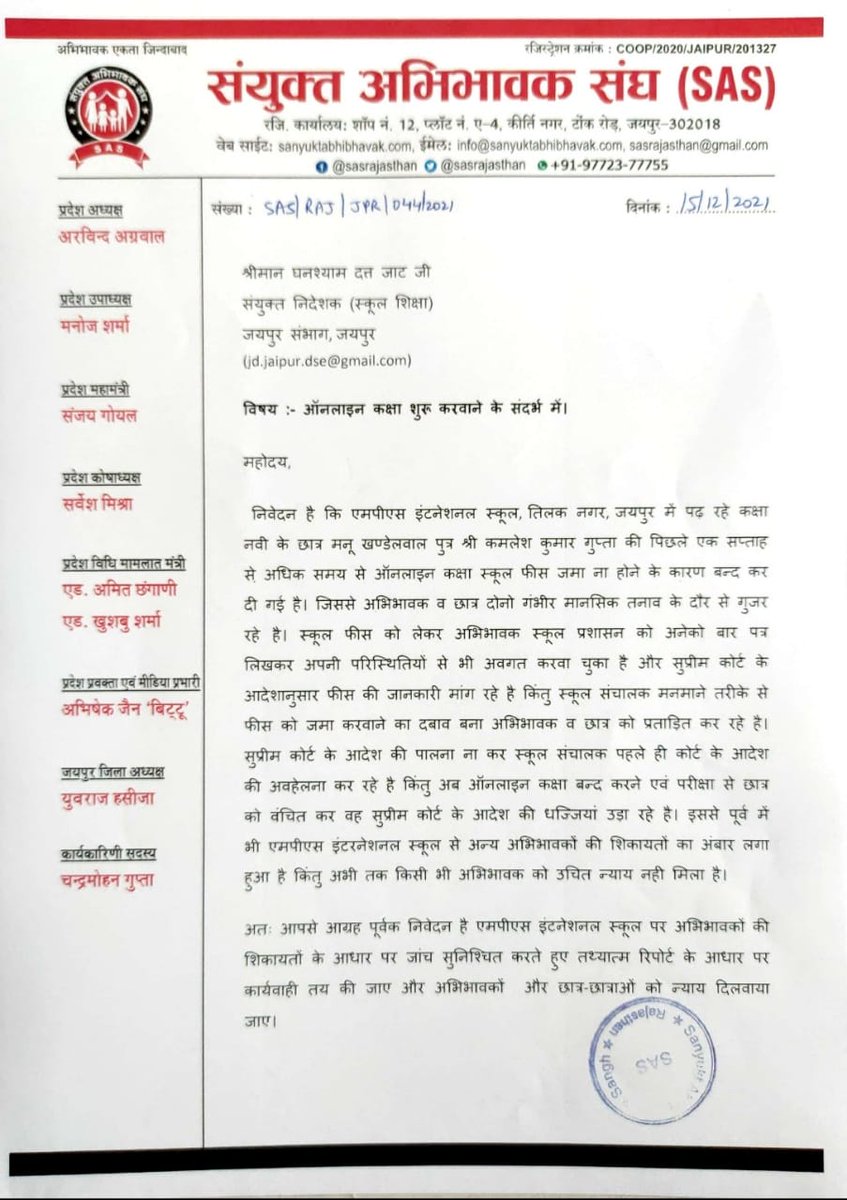 अभिभावक एकता जिन्दाबाद
रजिस्ट्रेशन क्रमांक : COOP/2020/JAIPUR/201327
संयुक्त अभिभावक संघ
SAS
संयुक्त अभिभावक संघ (SAS)
रजि. कार्यालय: शॉप नं. 12, प्लॉट नं. ए-4, कीर्ति नगर, टोंक रोड़, जयपुर-302018
वेब साईट: sanyuktabhibhavak.com, ईमेल: info@sanyuktabhibhavak.com, sasrajasthan@gmail.com
@sasrajasthan @sasrajasthan +91-97723-77755
संख्या : SAS/RAJ/JPR/044/2021
दिनांक : 15/12/2021
प्रदेश अध्यक्ष
अरविन्द अग्रवाल
प्रदेश उपाध्यक्ष
मनोज शर्मा
प्रदेश महामंत्री
संजय गोयल
प्रदेश कोषाध्यक्ष
सर्वेश मिश्रा
प्रदेश विधि मामलात मंत्री
एड. अमित छंगाणी
एड. खुशबु शर्मा
प्रदेश प्रवक्ता एवं मीडिया प्रभारी
अभिषेक जैन ‘बिट्टू’
जयपुर जिला अध्यक्ष
युवराज हसीजा
कार्यकारिणी सदस्य
चन्द्रमोहन गुप्ता
श्रीमान घनश्याम दत्त जाट जी
संयुक्त निदेशक (स्कूल शिक्षा)
जयपुर संभाग, जयपुर
(jd.jaipur.dse@gmail.com)
विषय :- ऑनलाइन कक्षा शुरू करवाने के संदर्भ में।
महोदय,
निवेदन है कि एमपीएस इंटनेशनल स्कूल, तिलक नगर, जयपुर में पढ़ रहे कक्षा
नवी के छात्र मनू खण्डेलवाल पुत्र श्री कमलेश कुमार गुप्ता की पिछले एक सप्ताह
से अधिक समय से ऑनलाइन कक्षा स्कूल फीस जमा ना होने के कारण बन्द कर
दी गई है। जिससे अभिभावक व छात्र दोनो गंभीर मानसिक तनाव के दौर से गुजर
रहे है। स्कूल फीस को लेकर अभिभावक स्कूल प्रशासन को अनेको बार पत्र
लिखकर अपनी परिस्थितियों से भी अवगत करवा चुका है और सुप्रीम कोर्ट के
आदेशानुसार फीस की जानकारी मांग रहे है किंतु स्कूल संचालक मनमाने तरीके से
फीस को जमा करवाने का दबाव बना अभिभावक व छात्र को प्रताड़ित कर रहे है।
सुप्रीम कोर्ट के आदेश की पालना ना कर स्कूल संचालक पहले ही कोर्ट के आदेश
की अवहेलना कर रहे है किंतु अब ऑनलाइन कक्षा बन्द करने एवं परीक्षा से छात्र
को वंचित कर वह सुप्रीम कोर्ट के आदेश की धज्जियां उड़ा रहे है। इससे पूर्व में
भी एमपीएस इंटरनेशनल स्कूल से अन्य अभिभावकों की शिकायतों का अंबार लगा
हुआ है किंतु अभी तक किसी भी अभिभावक को उचित न्याय नही मिला है।
अतः आपसे आग्रह पूर्वक निवेदन है एमपीएस इंटनेशनल स्कूल पर अभिभावकों की
शिकायतों के आधार पर जांच सुनिश्चित करते हुए तथ्यात्म रिपोर्ट के आधार पर
कार्यवाही तय की जाए और अभिभावकों और छात्र-छात्राओं को न्याय दिलवाया
जाए।
Sangh ★ Rajasthan ★ Sanyukt
SAS